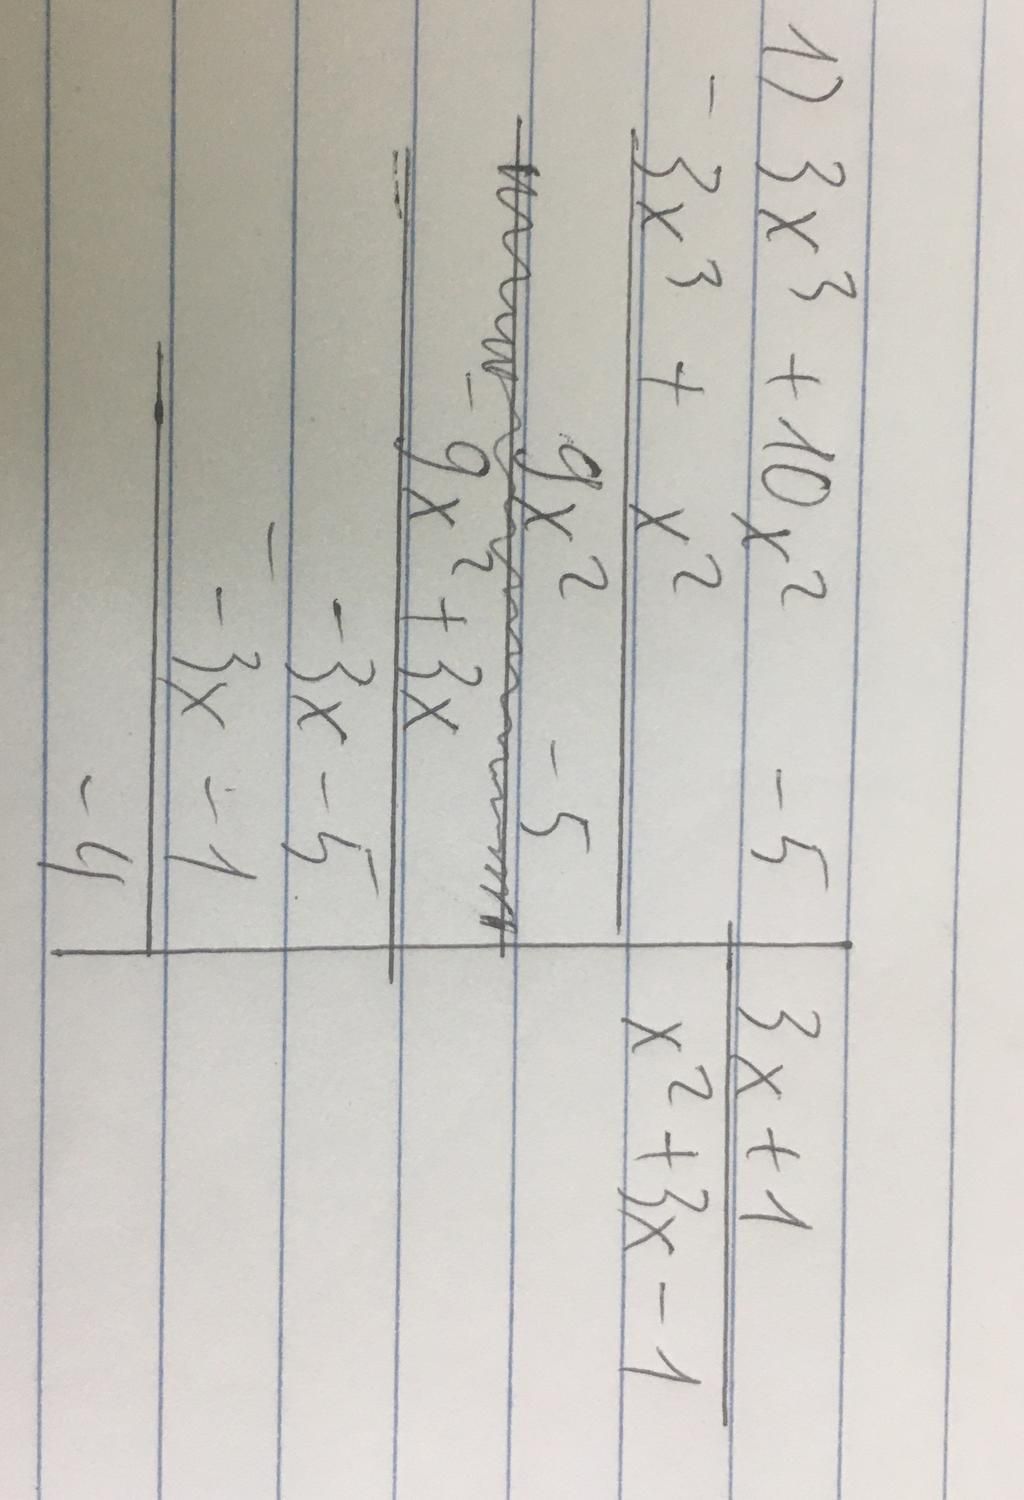 1) 3x³ + 10x² - 5 | 3x + 1
- 3x³ + x² | x² + 3x - 1
9x² - 5
- 9x² + 3x
- 3x - 5
- - 3x - 1
- 4